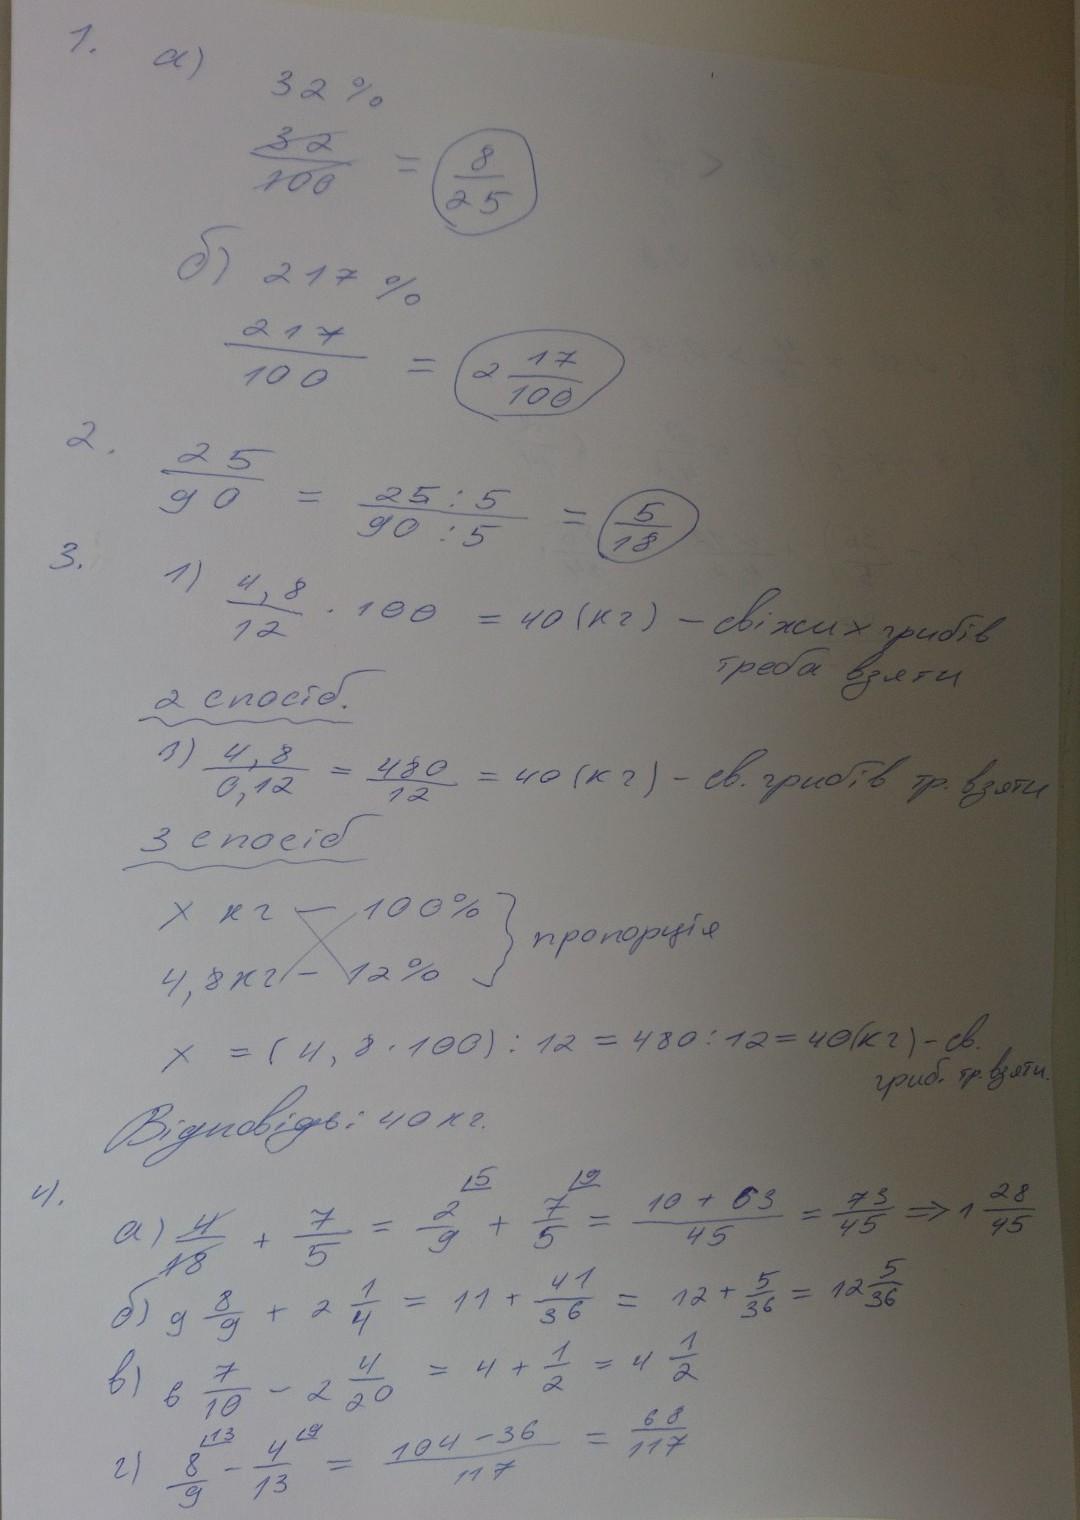 1. а) 32 %
32/100 = 8/25
б) 217 %
217/100 = 2 17/100
2. 25/90 = 25 : 5/90 : 5 = 5/18
3. 1) 4,8/12 · 100 = 40 (кг) – свіжих грибів
треба взяти
2 спосіб.
1) 4,8/0,12 = 480/12 = 40 (кг) – св. грибів тр. взяти
3 спосіб
х кг – 100%
4,8 кг – 12%
} пропорція
х = (4,8 · 100) : 12 = 480 : 12 = 40 (кг) – св.
гриб. тр. взяти.
Відповідь: 40 кг.
4. а) 4/18 + 7/5 = 2/9 + 7/5 = 10 + 63/45 = 73/45 => 1 28/45
б) 9 8/9 + 2 1/4 = 11 + 41/36 = 12 + 5/36 = 12 5/36
в) 6 7/10 – 2 4/20 = 4 + 1/2 = 4 1/2
г) 8/9 – 4/13 = 104 – 36/117 = 68/117